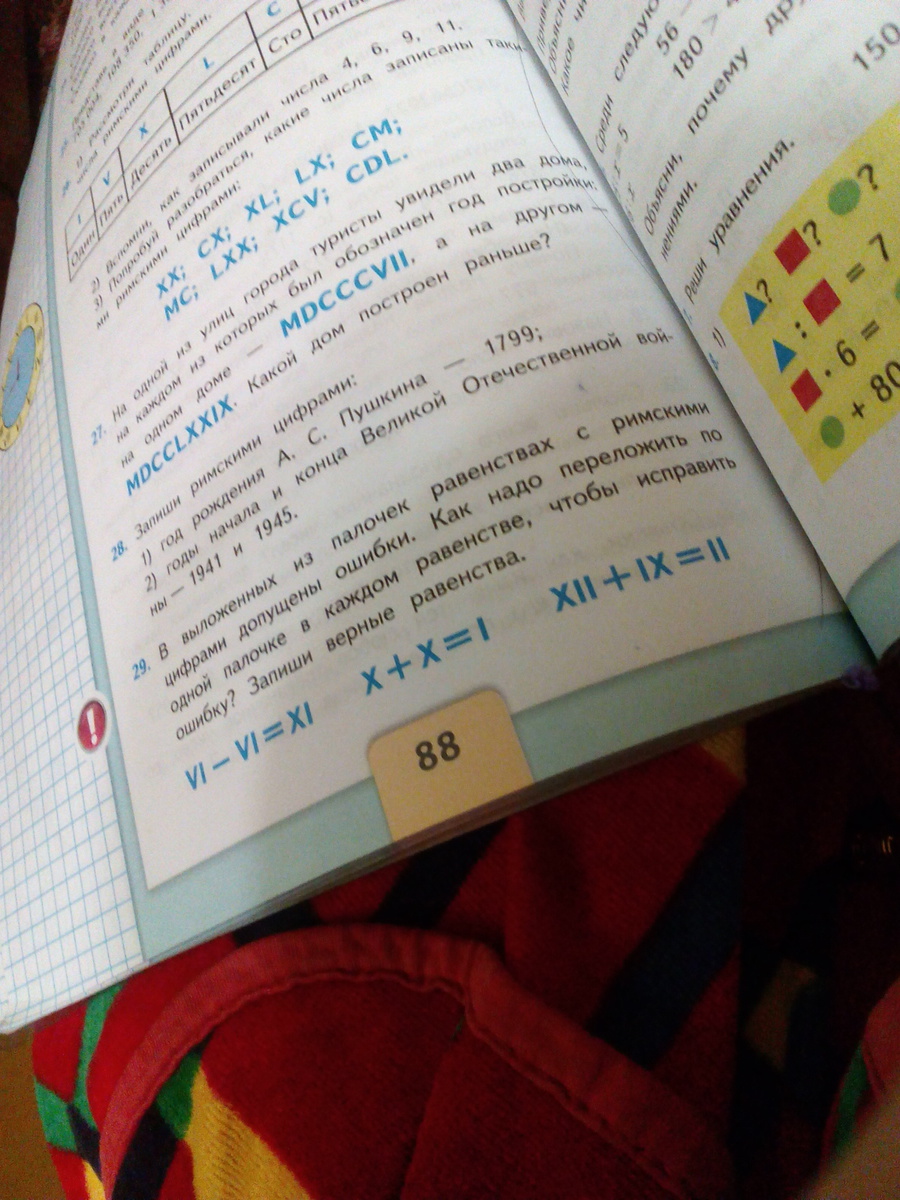 1) Рассмотри таблицу.
числа римскими цифрами.
I V X L C
Один Пять Десять Пятьдесят Сто
2) Вспомни, как записывали числа 4, 6, 9, 11.
3) Попробуй разобраться, какие числа записаны таки-
ми римскими цифрами:
XX; CX; XL; LX; CM;
MC; LXX; XCV; CDL.
27. На одной из улиц города туристы увидели два дома,
на каждом из которых был обозначен год постройки:
на одном доме — MDCCCVII, а на другом —
MDCCLXXIX. Какой дом построен раньше?
28. Запиши римскими цифрами:
1) год рождения А. С. Пушкина — 1799;
2) годы начала и конца Великой Отечественной вой-
ны — 1941 и 1945.
29. В выложенных из палочек равенствах с римскими
цифрами допущены ошибки. Как надо переложить по
одной палочке в каждом равенстве, чтобы исправить
ошибку? Запиши верные равенства.
VI − VI = XI X + X = I XII + IX = II
88
!
Среди следую
56 −
180 >
= 5
Объясни, почему
нениями.
150
Реши уравнения.
1)
? ? ?
: = 7
· 6 =
+ 80